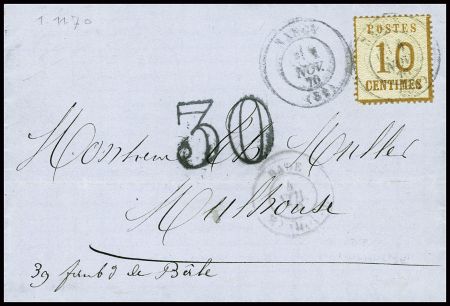 1.11.70
NANCY
NOV.
70
(52)
POSTES
10
CENTIMES
30
Monsieur Ch. Muller
Mulhouse
39 faub d de Bâle